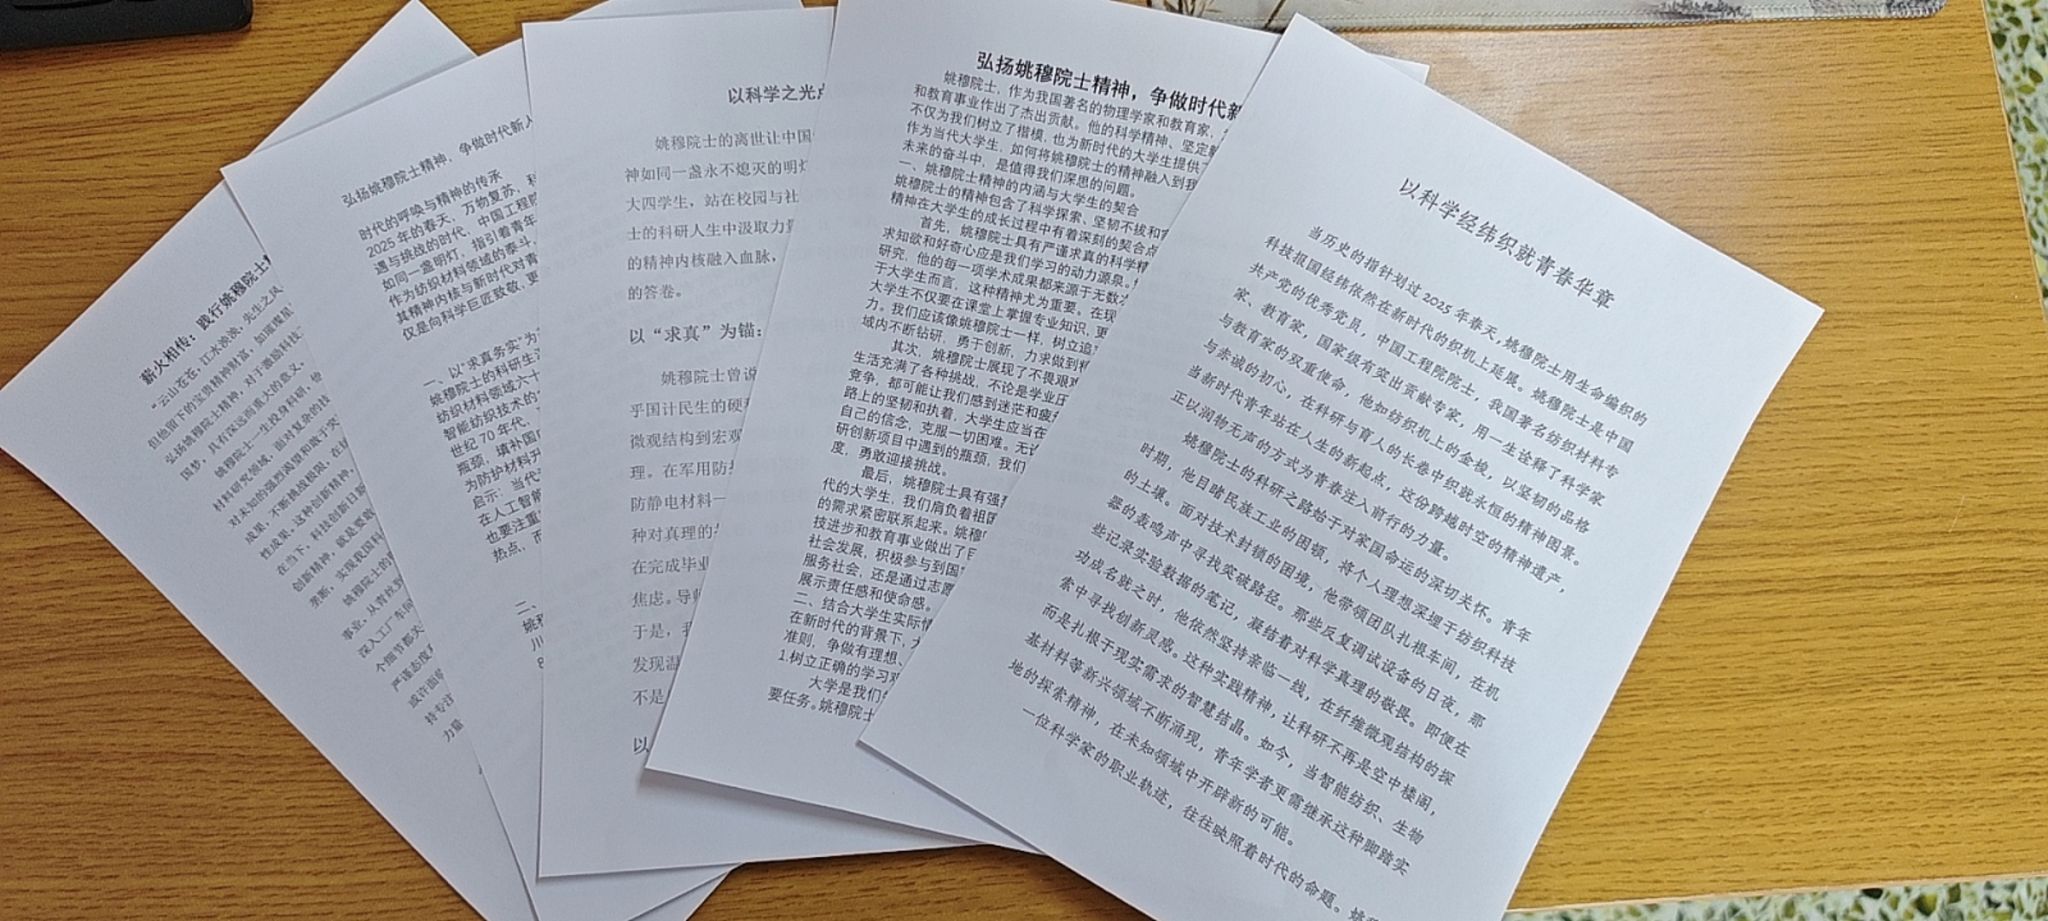 薪火相传：践行姚穆院士
“云山苍苍，江水泱泱，先生之风
但他留下的宝贵精神财富，如璀璨星
弘扬姚穆院士精神，对于激励科技
国梦，具有深远而重大的意义。
姚穆院士一生投身科研，他
材料研究领域，面对复杂的技
对未知的强烈渴望和敢于突
成果，不断挑战极限，在
性成果。这种创新精神，
在当下，科技创新日新
创新精神，就是要敢
垄断，实现我国科
姚穆院士的
事业，从青丝到
深入工厂车间
个细节都关
严谨态度和
或许面临
持专注
力量
弘扬姚穆院士精神，争做时代新人
时代的呼唤与精神的传承
2025 年的春天，万物复苏，科
遇与挑战的时代，中国工程院
如同一盏明灯，指引着青年
作为纺织材料领域的泰斗，
其精神内核与新时代对青
仅是向科学巨匠致敬，更
一、以“求真务实”为
姚穆院士的科研生涯
纺织材料领域六十
智能纺织技术的
世纪 70 年代，
瓶颈，填补国
为防护材料升
启示：当代
在人工智能
也要注重
热点，而
二、
姚穆
川
以科学之光点
姚穆院士的离世让中国
神如同一盏永不熄灭的明灯
大四学生，站在校园与社
士的科研人生中汲取力量
的精神内核融入血脉，
的答卷。
以“求真”为锚：
姚穆院士曾说
乎国计民生的硬科
微观结构到宏观
理。在军用防护
防静电材料一
种对真理的
在完成毕业
焦虑。导师
于是，我
发现温
不是
以
弘扬姚穆院士精神，争做时代新
姚穆院士，作为我国著名的物理学家和教育家，
和教育事业作出了杰出贡献。他的科学精神、坚定
不仅为我们树立了楷模，也为新时代的大学生提供了
作为当代大学生，如何将姚穆院士的精神融入到我
未来的奋斗中，是值得我们深思的问题。
一、姚穆院士精神的内涵与大学生的契合
姚穆院士的精神包含了科学探索、坚韧不拔和
精神在大学生的成长过程中有着深刻的契合点
首先，姚穆院士具有严谨求真的科学精
求知欲和好奇心应是我们学习的动力源泉。
研究，他的每一项学术成果都来源于无数次
于大学生而言，这种精神尤为重要。在现
大学生不仅要在课堂上掌握专业知识，更
力。我们应该像姚穆院士一样，树立追
域内不断钻研，勇于创新，力求做到
其次，姚穆院士展现了不畏艰难
生活充满了各种挑战，不论是学业压
竞争，都可能让我们感到迷茫和疲
路上的坚韧和执着，大学生应当在
自己的信念，克服一切困难。无论
研创新项目中遇到的瓶颈，我们
度，勇敢迎接挑战。
最后，姚穆院士具有强烈
代的大学生，我们肩负着祖国
的需求紧密联系起来。姚穆
技进步和教育事业做出了巨
社会发展，积极参与到国
服务社会，还是通过志愿
展示责任感和使命感。
二、结合大学生实际情
在新时代的背景下，大
准则，争做有理想、
1.树立正确的学习观
大学是我们
要任务。姚穆院士
以科学经纬织就青春华章
当历史的指针划过 2025 年春天，姚穆院士用生命编织的
科技报国经纬依然在新时代的织机上延展。姚穆院士是中国
共产党的优秀党员，中国工程院院士，我国著名纺织材料专
家、教育家，国家级有突出贡献专家，用一生诠释了科学家
与教育家的双重使命，他如纺织机上的金梭，以坚韧的品格
与赤诚的初心，在科研与育人的长卷中织就永恒的精神图景。
当新时代青年站在人生的新起点，这份跨越时空的精神遗产，
正以润物无声的方式为青春注入前行的力量。
姚穆院士的科研之路始于对家国命运的深切关怀。青年
时期，他目睹民族工业的困顿，将个人理想深埋于纺织科技
的土壤。面对技术封锁的困境，他带领团队扎根车间，在机
器的轰鸣声中寻找突破路径。那些反复调试设备的日夜，那
些记录实验数据的笔记，凝结着对科学真理的敬畏。即便在
功成名就之时，他依然坚持亲临一线，在纤维微观结构的探
索中寻找创新灵感。这种实践精神，让科研不再是空中楼阁，
而是扎根于现实需求的智慧结晶。如今，当智能纺织、生物
基材料等新兴领域不断涌现，青年学者更需继承这种脚踏实
地的探索精神，在未知领域中开辟新的可能。
一位科学家的职业轨迹，往往映照着时代的命题。姚穆